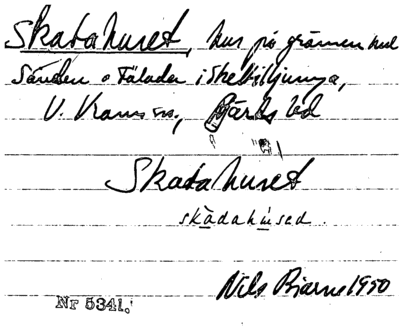 Skatahuset, hus på gränsen mel
Sånden o Fälader i Skebiljunga,
V. Vrams sn, Gärds hd
Skatahuset
skàdahùsed.
Nils Bjarne 1950
Nr 5341.